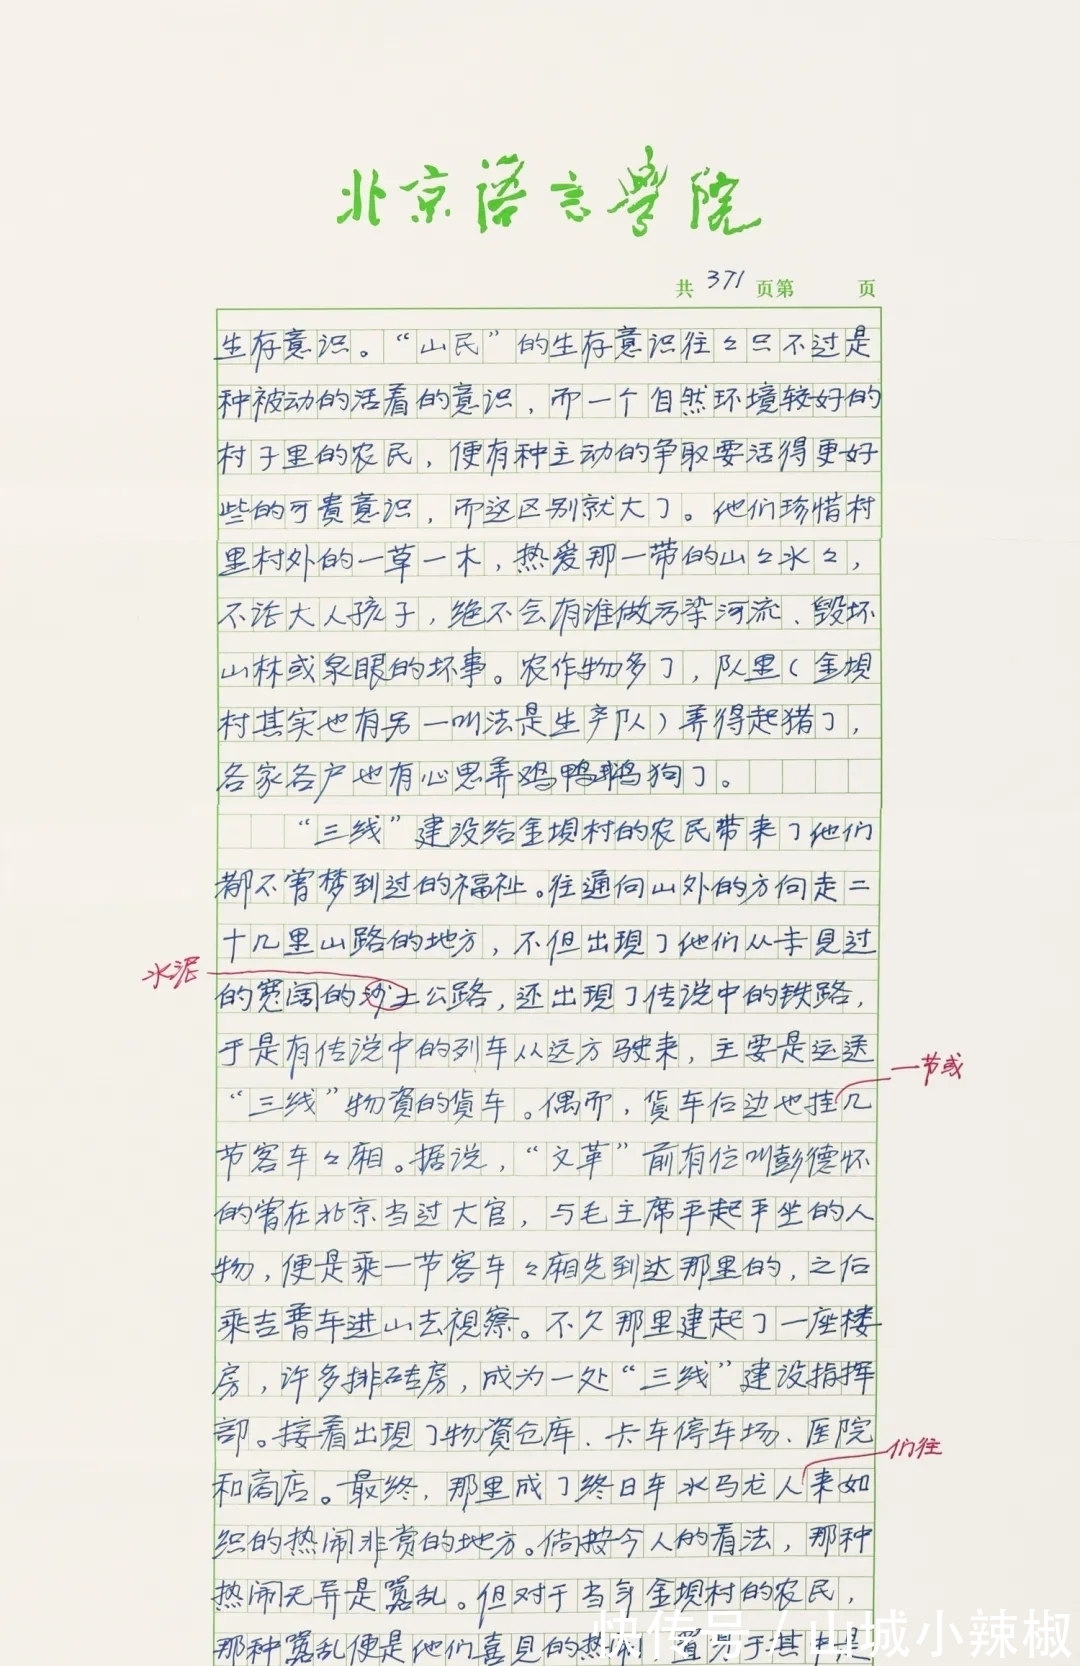 北京语言学院
共 371 页第 页
生存意识。“山民”的生存意识往々只不过是
种被动的活着的意识，而一个自然环境较好的
村子里的农民，便有种主动的争取要活得更好
些的可贵意识，而这区别就大了。他们珍惜村
里村外的一草一木，热爱那一带的山々水々，
不论大人孩子，绝不会有谁做污染河流、毁坏
山林或泉眼的坏事。农作物多了，队里（金坝
村其实也有另一叫法是生产队）养得起猪了，
各家各户也有心思养鸡鸭鹅狗了。
“三线”建设给金坝村的农民带来了他们
都不曾梦到过的福祉。往通向山外的方向走二
十几里山路的地方，不但出現了他们从未見过
水泥
的宽阔的沙土公路，还出現了传说中的铁路，
于是有传说中的列车从远方驶来，主要是运送
一节或
“三线”物資的貨车。偶而，貨车后边也挂几
节客车々厢。据说，“文革”前有位叫彭德怀
的曾在北京当过大官，与毛主席平起平坐的人
物，便是乘一节客车々厢先到达那里的，之后
乘吉普车进山去視察。不久那里建起了一座楼
房，许多排砖房，成为一处“三线”建设指挥
部。接着出現了物資仓库、卡车停车场、医院
们往
和商店。最终，那里成了终日车水马龙人来如
织的热闹非赏的地方。倘按今人的看法，那种
热闹无异是嚣乱。但对于当年金坝村的农民，
那种嚣乱便是他们喜見的热闹，置身于其中是
快传号 / 山城小辣椒